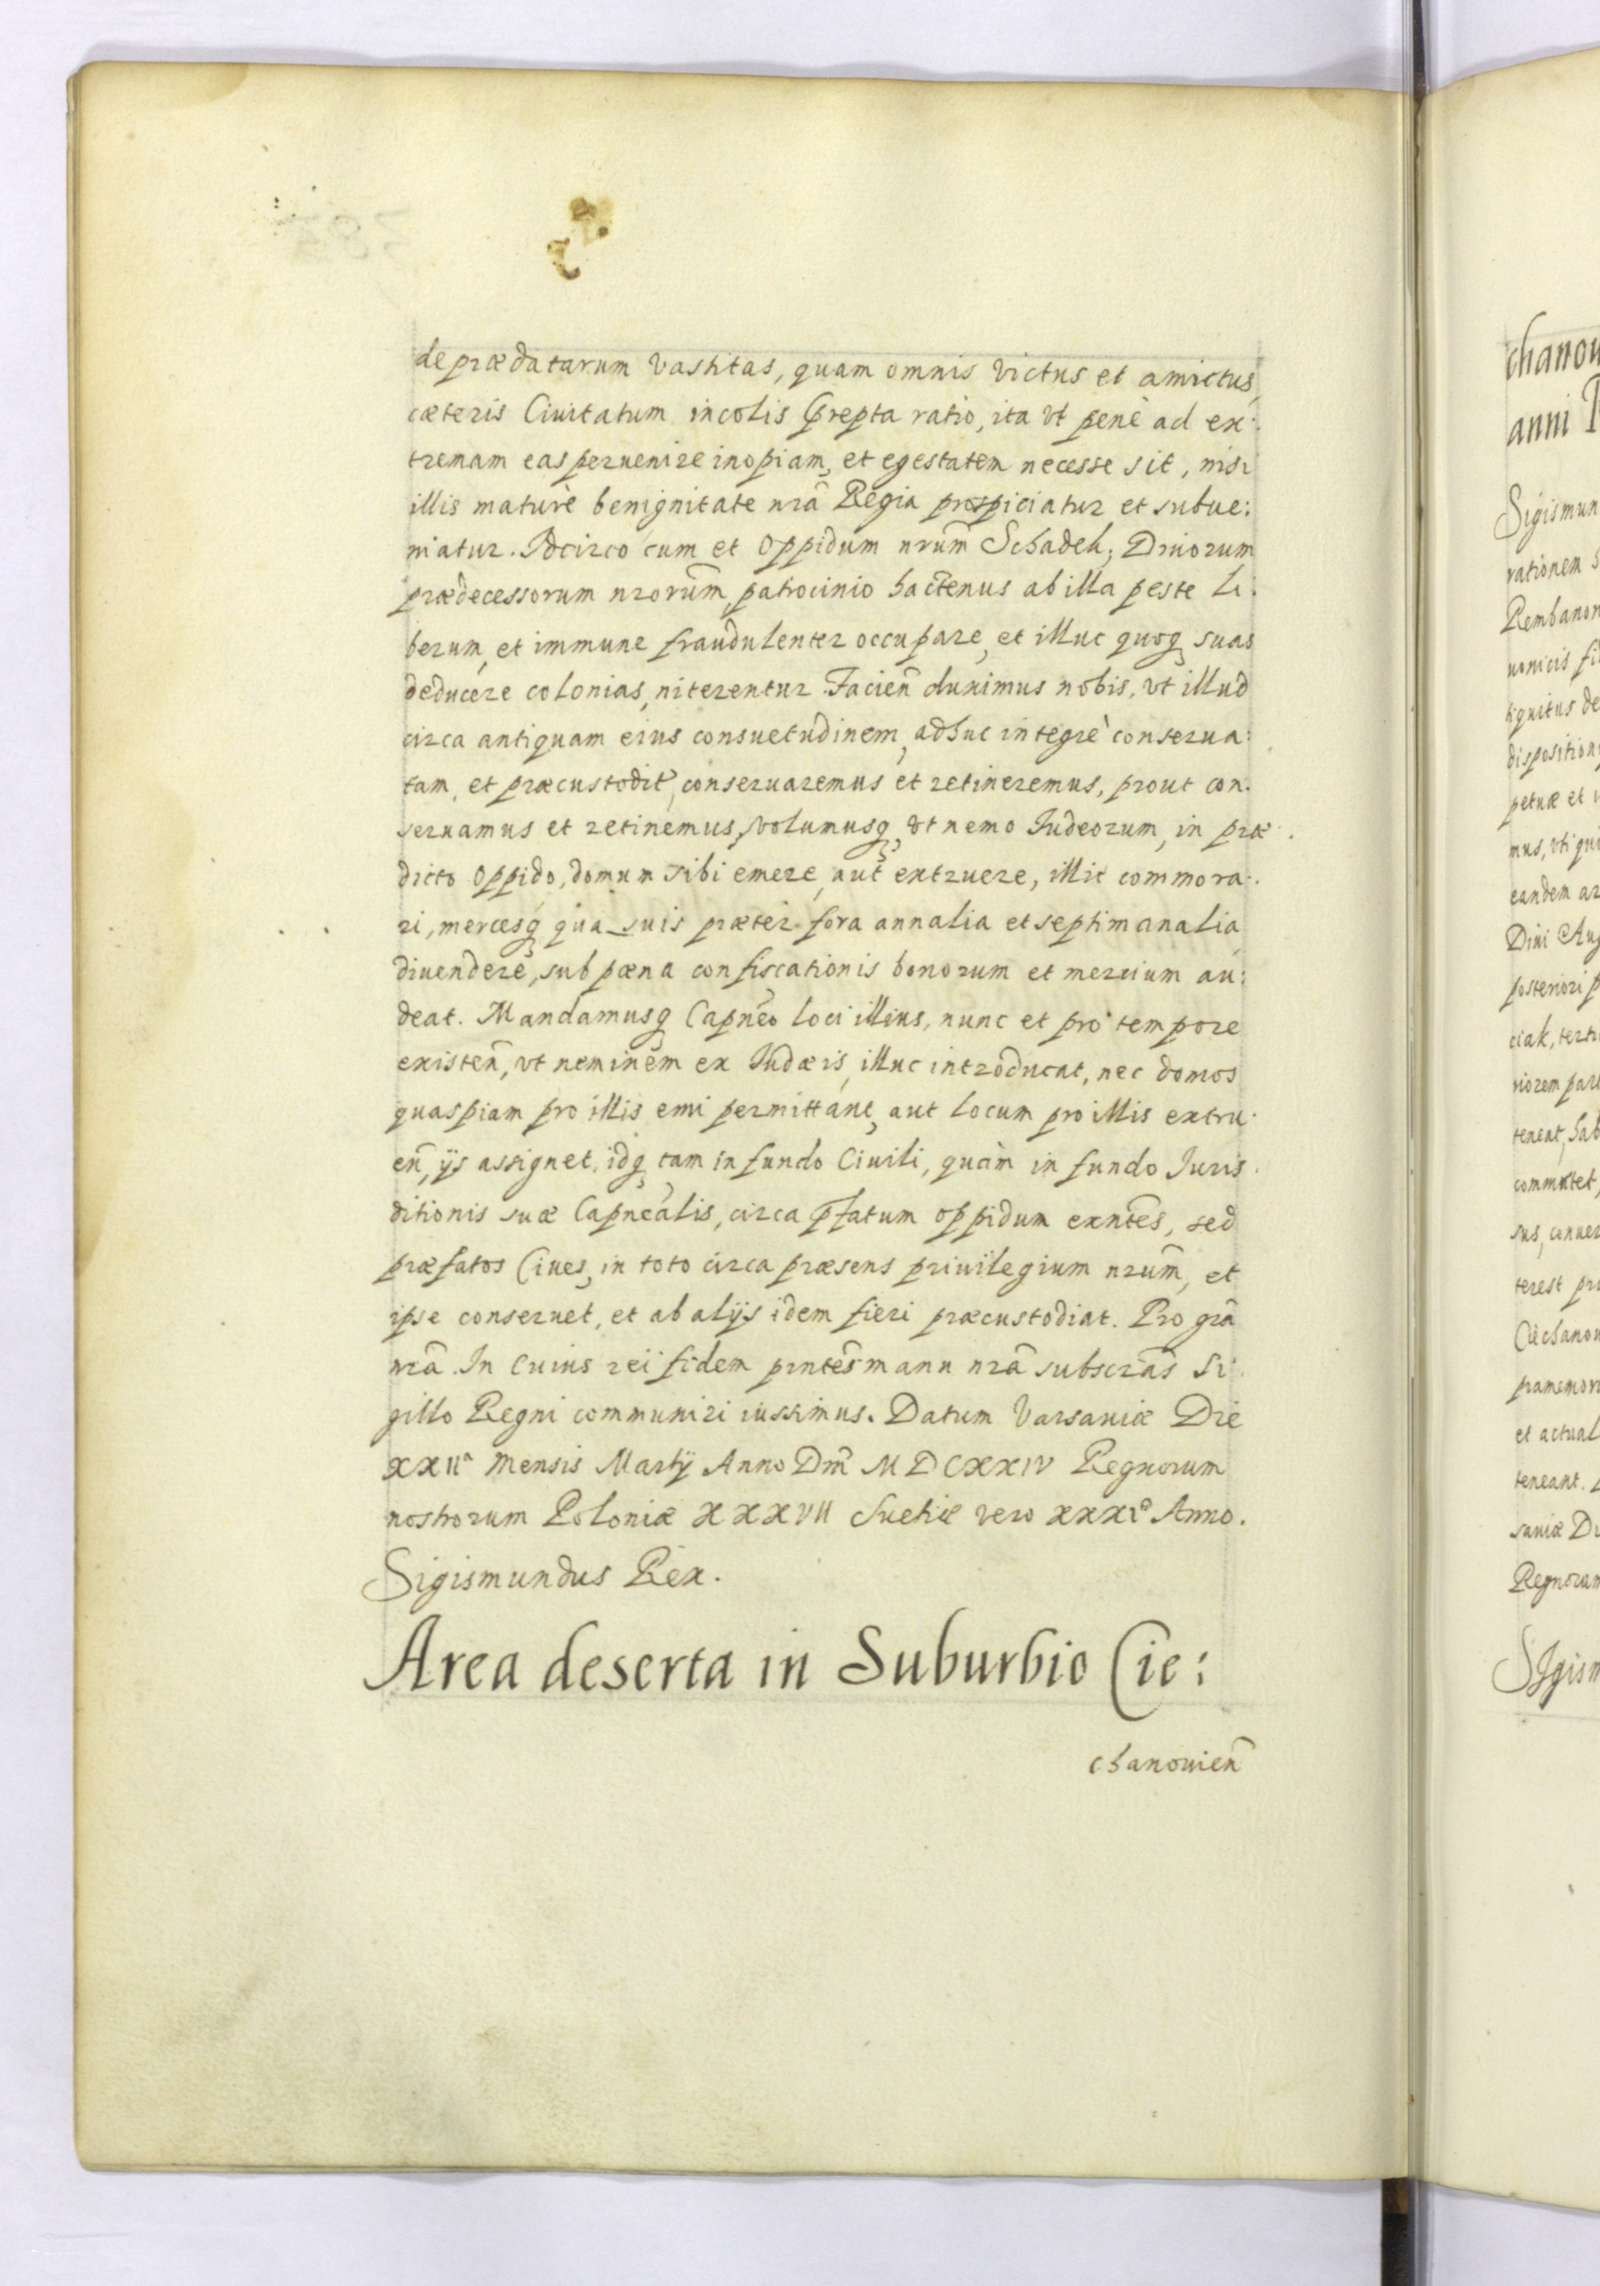 deprædatarum vastitas, quam omnis victus et amictus,
cæteris Ciuitatum incolis prærepta ratio, ita vt penè ad ex:
tremam eas peruenire inopiam, et egestatem necesse sit, nisi
illis maturè benignitate nrã Regia prospiciatur et subue:
niatur. Idcirco cum et Oppidum nrũm Schadek, Diuorum
prædecessorum nrorũm, patrocinio hactenus ab illa peste li:
berum, et immune fraudulenter occupare, et illuc quoq suas
deducere colonias, niterentur. Facieñ duximus nobis, vt illud
circa antiquam eius consuetudinem, adhuc integrè conserua:
tam, et præcustodit, conseruaremus et retineremus, prout con:
seruamus et retinemus, volumusq, vt nemo Iudeorum, in præ:
dicto Oppido, domum sibi emere, aut extruere, illic commora:
ri, mercesq qua suis præter fora annalia et septimanalia
diuendere, sub pœna confiscationis bonorum et mercium au:
deat. Mandamusq Capneo loci illius, nunc et pro tempore
existeñ, vt neminem ex Iudæis, illuc introducat, nec domos
quaspiam pro illis emi permittant, aut locum pro illis extru:
eñ, ijs assignet, idq tam in fundo Ciuili, quàm in fundo Juris:
ditionis suæ Capnealis, circa pfatum oppidum exñtes, sed
præfatos Ciues, in toto circa præsens priuilegium nrũm, et
ipse conseruet, et ab alijs idem fieri præcustodiat. Pro grã
nrã. In cuius rei fidem pñtes manu nrã subscrãs Si:
gillo Regni communiri iussimus. Datum Varsauiæ Die
XXIIa Mensis Martij Anno Dnĩ MDCXXIV Regnorum
nostrorum Poloniæ XXXVII Suetiæ vero XXXIo Anno.
Sigismundus Rex.
Area deserta in Suburbio Cie:
chanouieñ
chanou
anni
Sigismun
rationem
Rembanon
dispositiony
petuæ et
mus, vti qui
eandem ar
Diui Aug
posteriori p
ciak, terti
riorem part
teneat, hab
sus, conuer
terest
Ciechanou
et actual
teneant.
sauiæ Di
Regnorum
Sigism